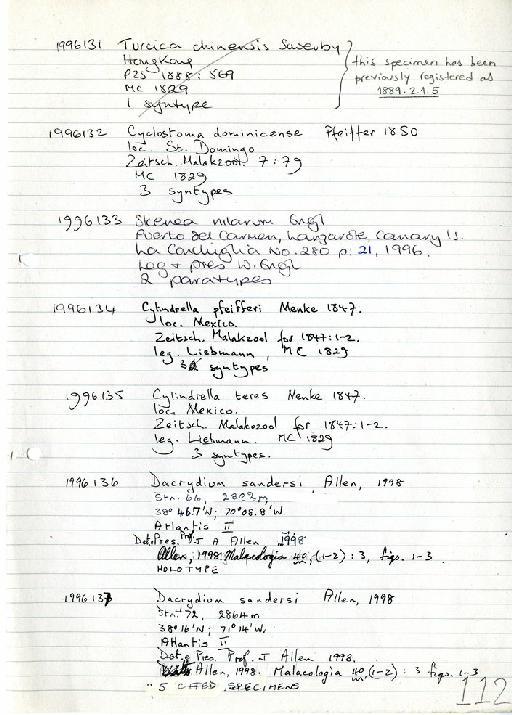 1996131 Turcica chinensis Sowerby
Hong Kong
PZS 1888: 569
MC 1829
1 syntype
this specimen has been
previously registered as
1889.2.1.5
1996132 Cyclostoma dominicense Pfeiffer 1850
loc. St. Domingo
Zeitsch. Malakzool. 7:79
MC 1829
3 syntypes
1996133 Skenea nilarum Engl
Puerto del Carmen, Lanzarote, Canary Is.
La Conchiglia No. 280 p. 21, 1996.
Leg + pres W. Engl
2 paratypes
1996134 Cylindrella pfeifferi Menke 1847.
loc. Mexico.
Zeitsch. Malakozool for 1847:1-2.
leg. Liebmann, MC 1829
syntypes
1996135 Cylindrella teres Menke 1847.
loc. Mexico.
Zeitsch. Malakozool for 1847:1-2.
leg. Liebmann. MC 1829
3 syntypes.
1996136 Dacrydium sandersi Allen, 1998
Stn. 66, 2802m
38° 46.7'N; 70° 08.8'W
Atlantis II
Det & Pres. Prof. J A Allen 1998
Allen, 1998 Malacologia 40, (1-2): 3, figs. 1-3
HOLOTYPE
1996137 Dacrydium sandersi Allen, 1998
Stn. 72, 2864m
38° 16'N; 71° 14'W.
Atlantis II
Det & Pres. Prof. J Allen 1998.
Allen, 1998. Malacologia 40, (1-2): 3 figs. 1-3
"5 CITED SPECIMENS
112